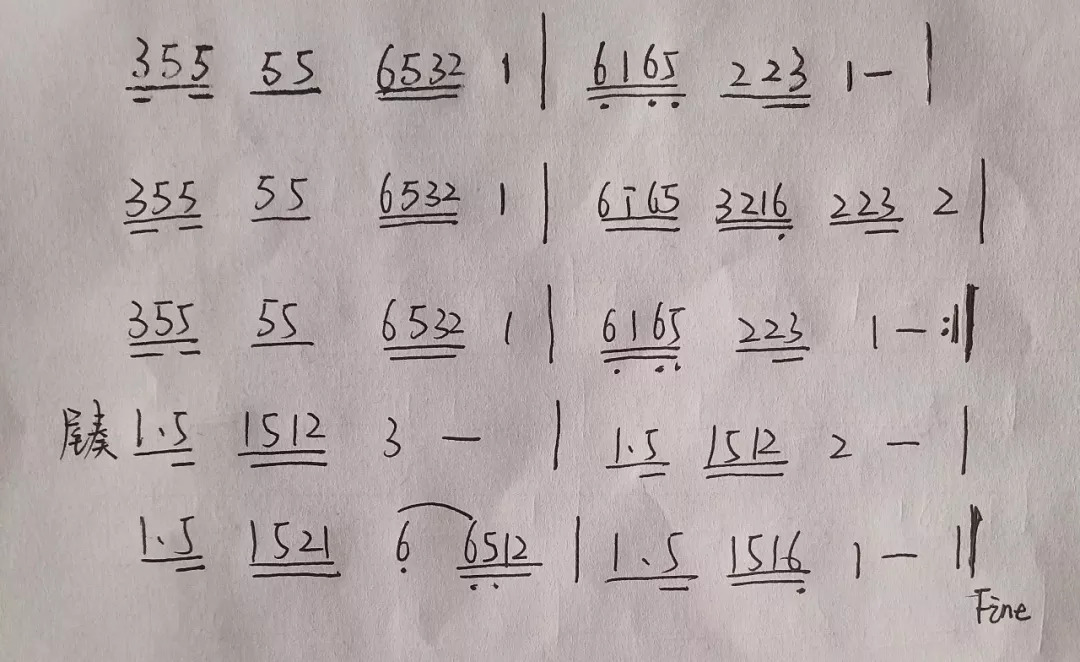 355 55 6532 1 | 6165 223 1 — |
355 55 6532 1 | 6i65 3216 223 2 |
355 55 6532 1 | 6165 223 1 — :‖
尾奏 1.5 1512 3 — | 1.5 1512 2 — |
1.5 1521 6 6512 | 1.5 1516 1 — ‖
Fine